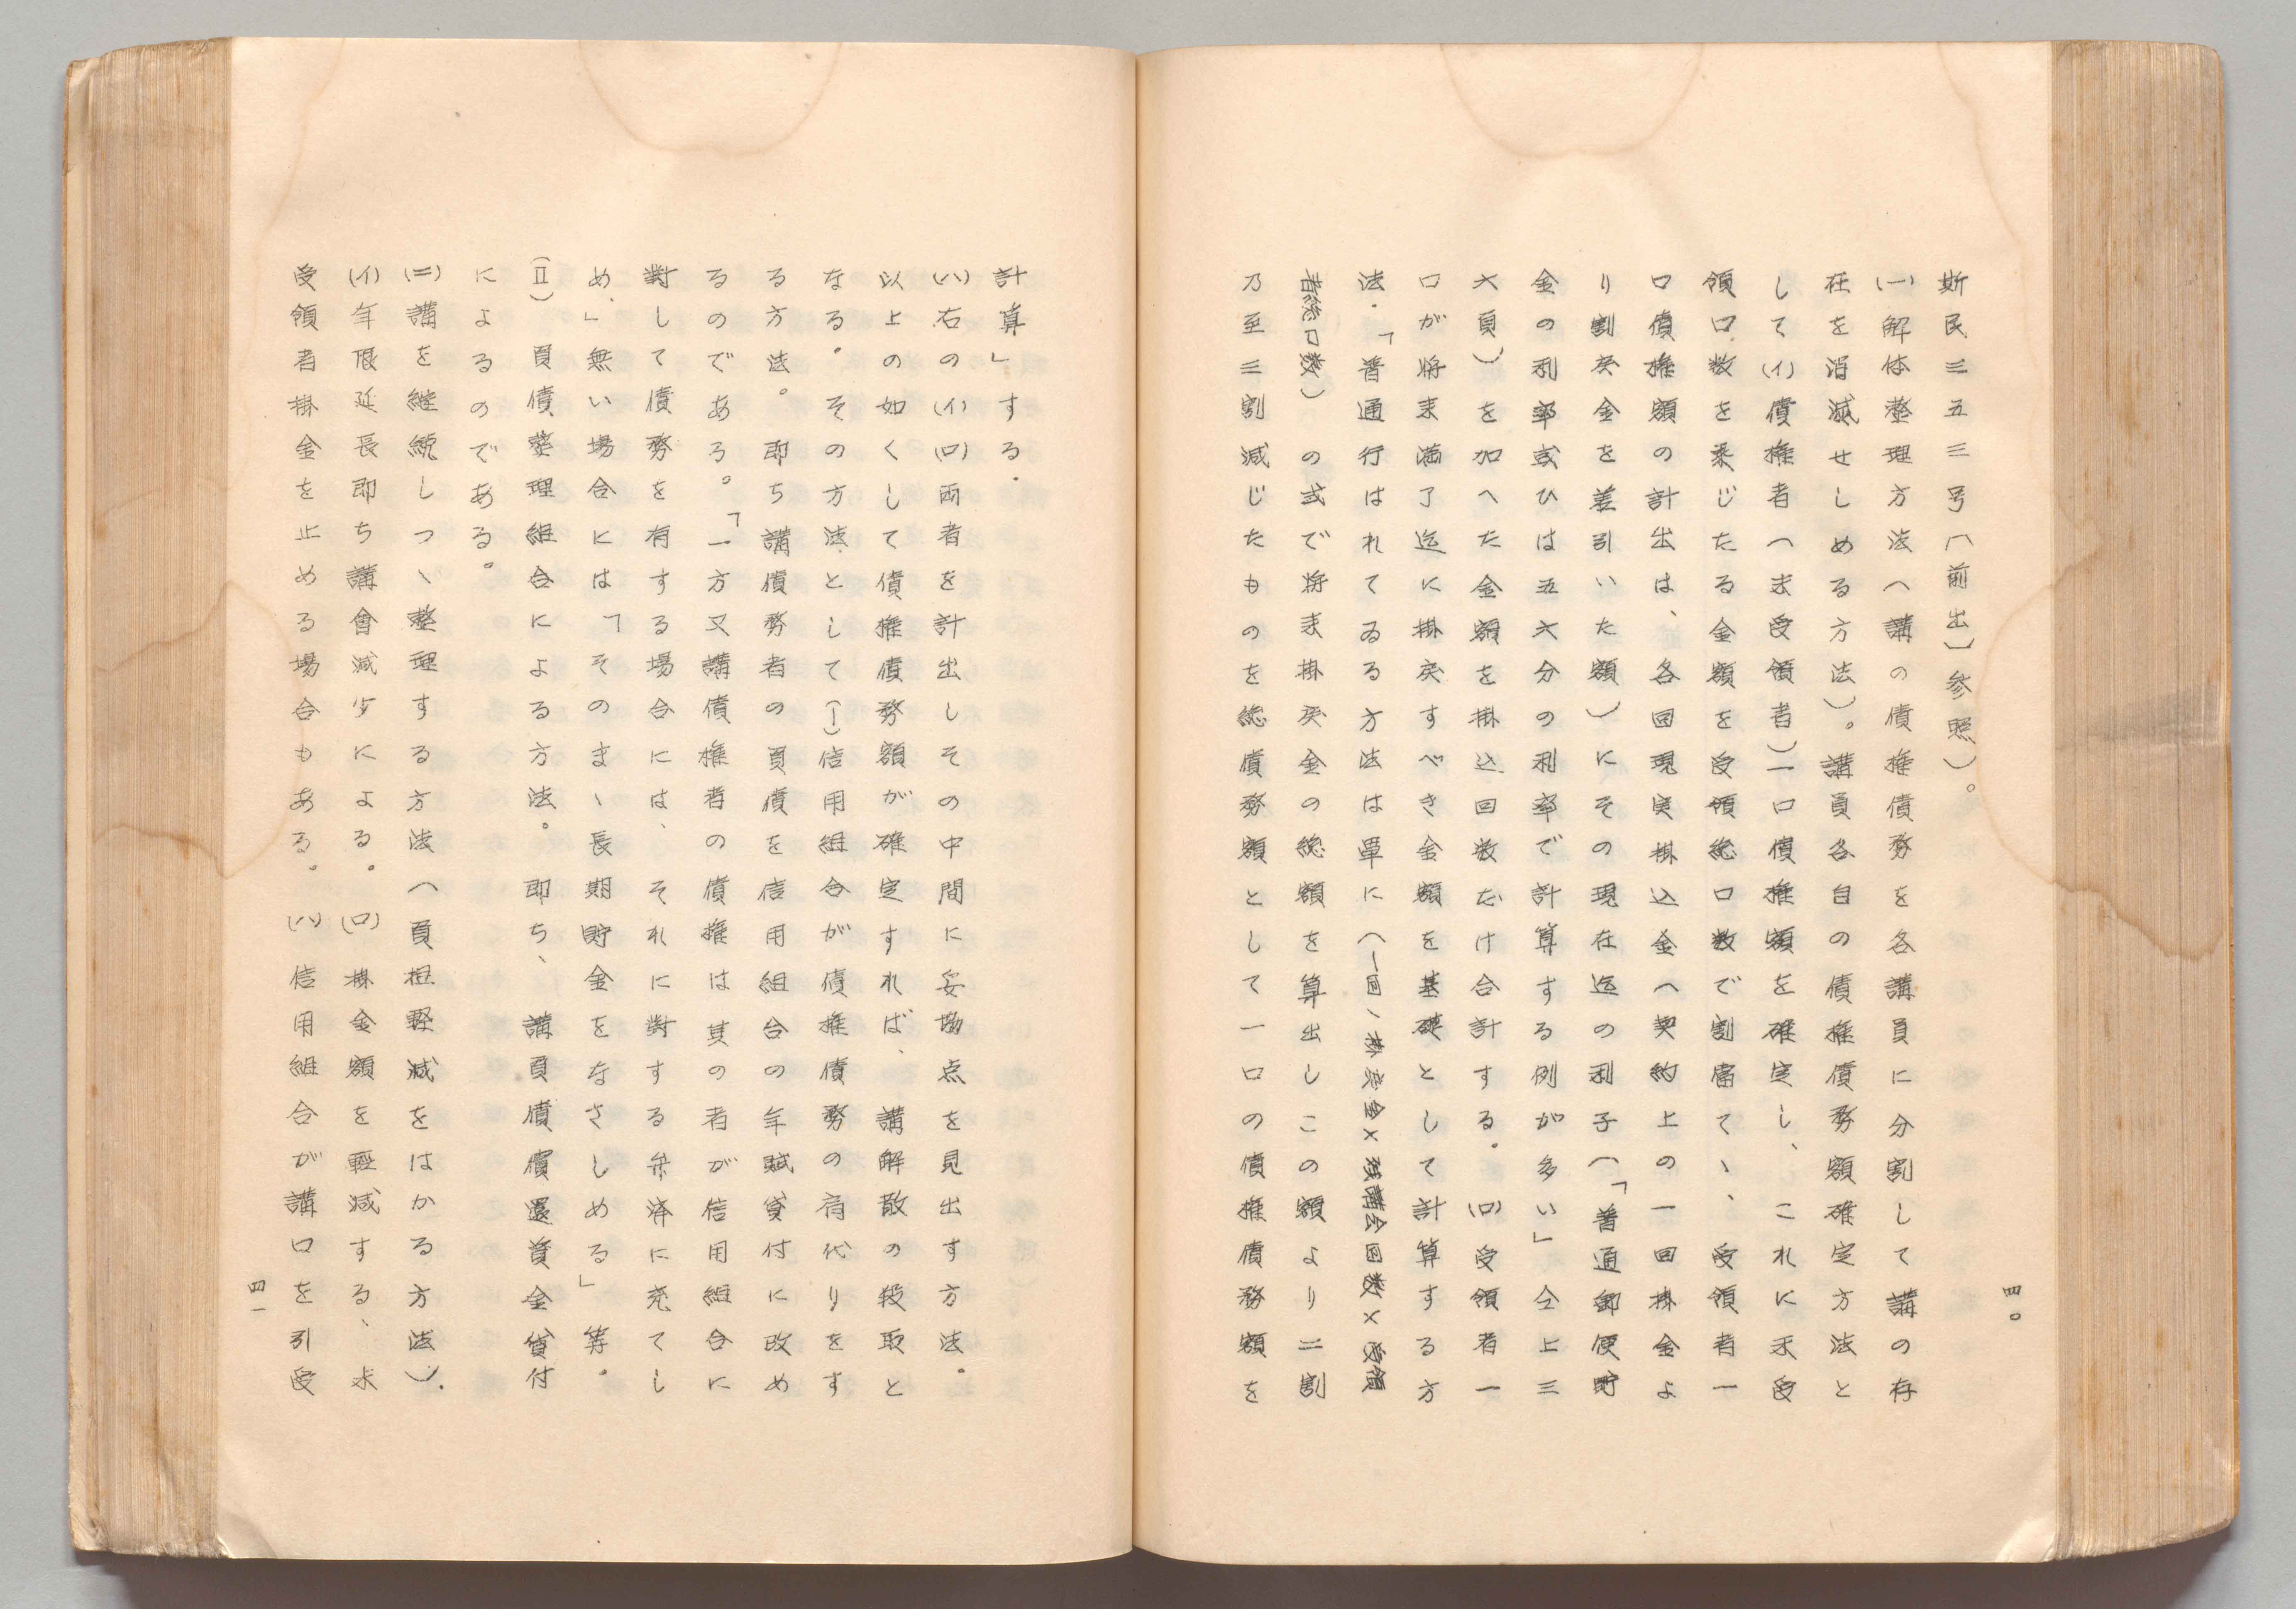 四〇
斯民三五三号(〔前出〕参照)。
(一)解体整理方法(講の債権債務を各講員に分割して講の存
在を消滅せしめる方法)。講員各自の債権債務額確定方法と
して(イ)債権者(未受領者)一口債権額を確定し、これに未受
領口数を乗じたる金額を受領総口数で割當てゝ、受領者一
口債権額の計出は、各回現実掛込金(契約上の一回掛金よ
り割戻金を差引いた額)にその現在迄の利子(「普通郵便貯
金の利率或ひは五六分の利率で計算する例が多い」仝上三
六頁)を加へた金額を掛込回数だけ合計する。(ロ)受領者一
口が将来満了迄に掛戻すべき金額を基礎として計算する方
法・「普通行はれてゐる方法は單に(一回ノ掛戻金×残講会回数×受領
者総口数)の式で将来掛戻金の総額を算出しこの額より二割
乃至三割減じたものを総債務額として一口の債権債務額を
計算」する・
(ハ)右の(イ)(ロ)両者を計出しその中間に妥協点を見出す方法。
以上の如くして債権債務額が確定すれば、講解散の段取と
なる。その方法として(I)信用組合が債権債務の肩代りをす
る方法。即ち講債務者の負債を信用組合の年賦貸付に改め
るのである。「一方又講債権者の債権は其の者が信用組合に
對して債務を有する場合には、それに對する弁済に充てし
め、」無い場合には「そのまゝ長期貯金をなさしめる」等。
(II)負債整理組合による方法。即ち、講負債償還資金貸付
によるのである。
(二)講を継続しつゝ整理する方法(負担軽減をはかる方法)・
(イ)年限延長即ち講會減少による。(ロ)掛金額を輕減する、未
受領者掛金を止める場合もある。(ハ)信用組合が講口を引受
四一